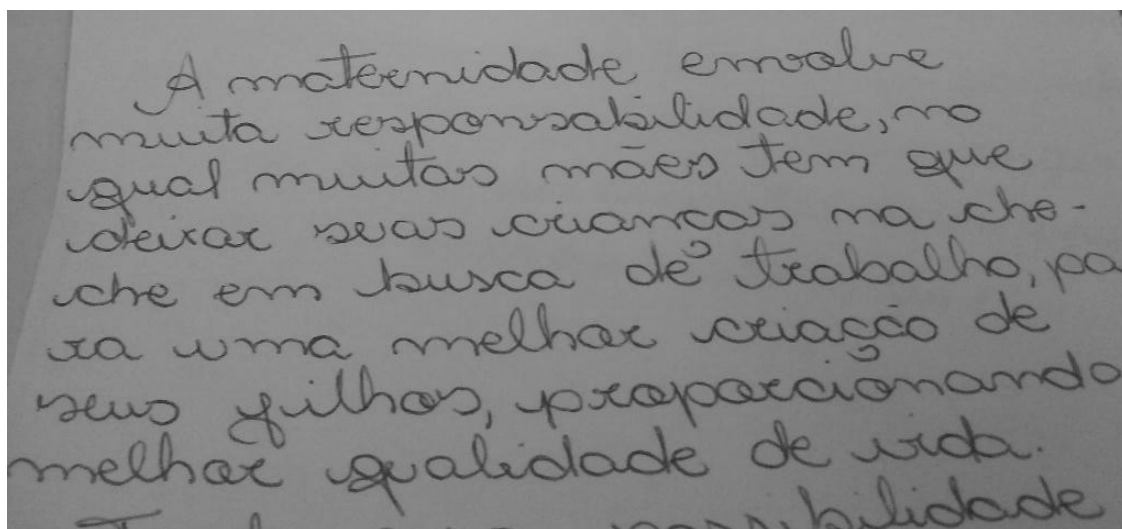 A maternidade envolve
muita responsabilidade, no
qual muitas mães tem que
deixar suas crianças na che-
che em busca de trabalho, pa
ra uma melhor criação de
seus filhos, proporcionando
melhor qualidade de vida.